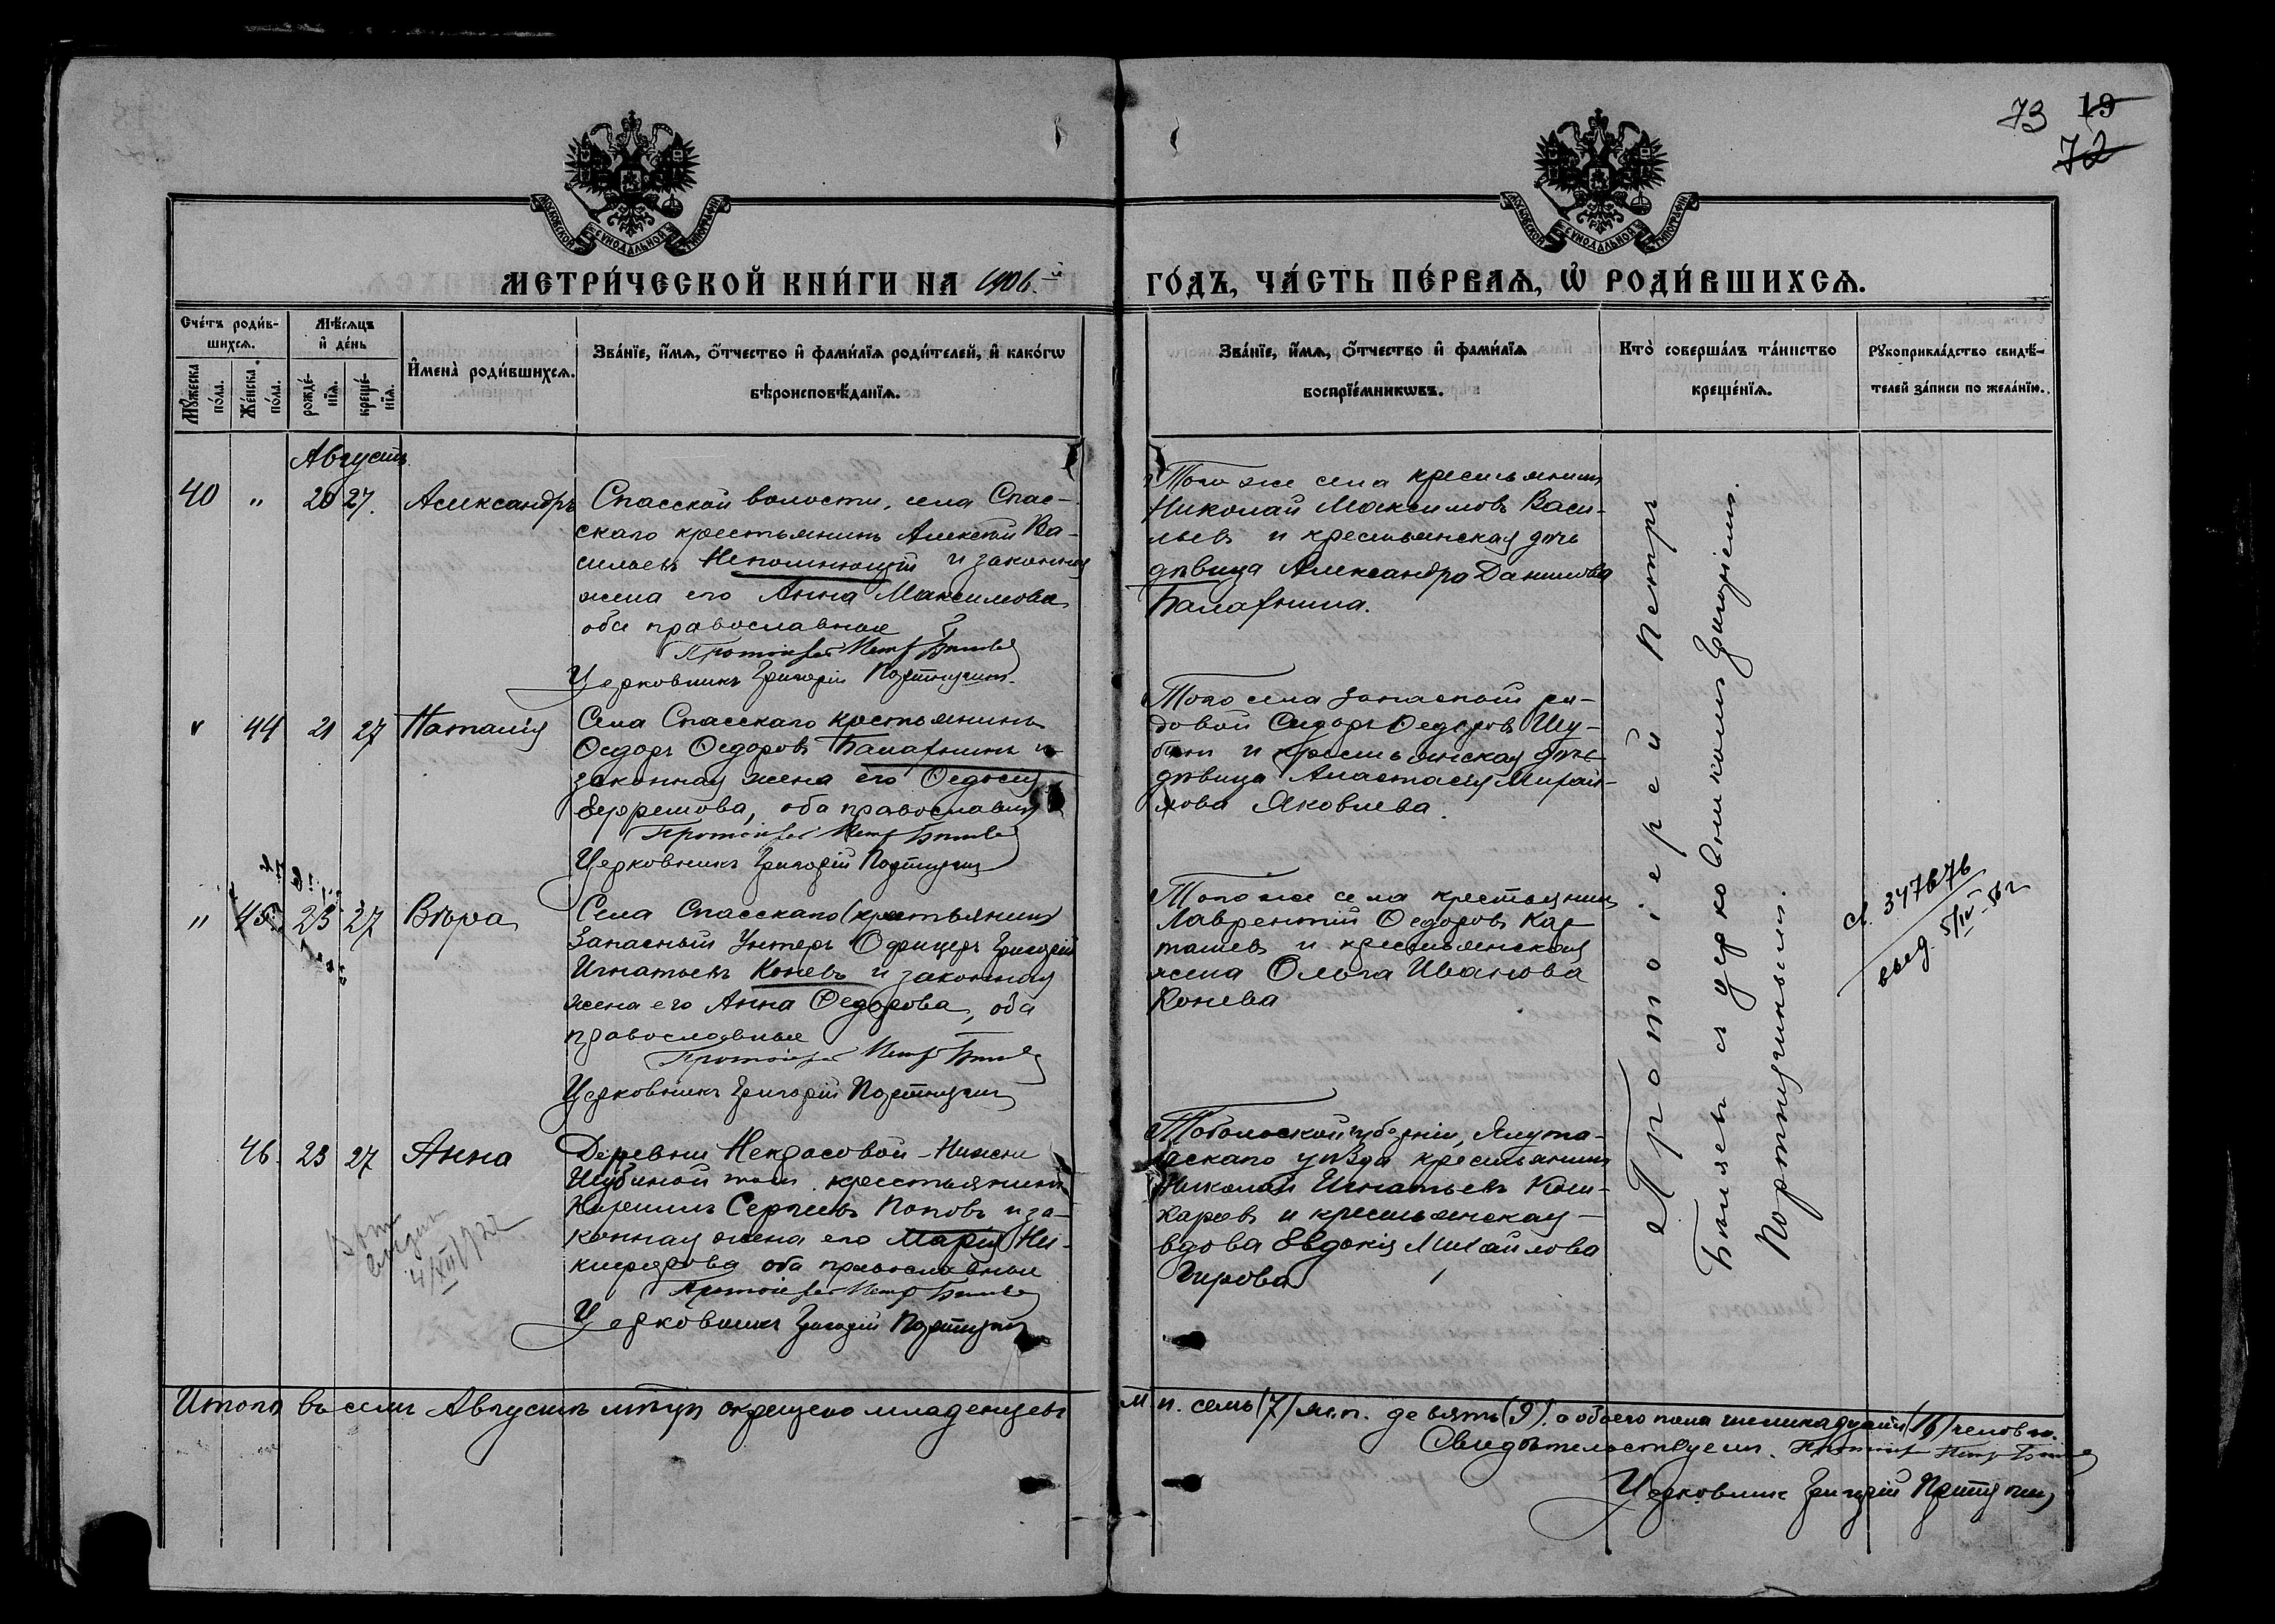 73 19
72
МОСКОВСКОЙ СУНОДАЛЬНОЙ ТИПОГРАФІИ
МОСКОВСКОЙ СУНОДАЛЬНОЙ ТИПОГРАФІИ
МЕТРИ́ЧЕСКОЙ КНИ́ГИ НА 1906.-й
ГО́ДЪ, ЧА́СТЬ ПЕ́РВАѦ, Ѽ РОДИ́ВШИХСѦ.
Сче́тъ роди́в-
шихсѧ.
Мꙋ́жеска по́ла.
Же́нска по́ла.
Мѣ́сѧцъ
и҆ де́нь
рожде́-
нїѧ.
креще́-
нїѧ.
И҆мена̀ роди́вшихсѧ.
Зва́нїе, и҆́мѧ, ѻ҆́тчество и҆ фами́лїѧ роди́телей, и҆ како́гѡ
вѣроисповѣ́данїѧ.
Зва́нїе, и҆́мѧ, ѻ҆́тчество и҆ фами́лїѧ
воспрїе́мникѡвъ.
Кто̀ соверша́лъ та́инство
креще́нїѧ.
Рꙋкоприкла́дство свидѣ́-
телей за́писи по жела́нїю.
Августъ
40 " 20 27. Александръ
Спасской волости, села Спас-
скаго крестьянинъ Алексѣй Ва-
сильевъ Непомнющій и законная
жена его Анна Максимова
оба православные
Протоіерей Петръ
Церковникъ Григорій Портнягинъ.
Того же села крестьянинъ
Николай Максимовъ Васи-
льевъ и крестьянская дочь
дѣвица Александра Данилова
Балахнина.
" 44 21 27 Наталія
Села Спасскаго крестьянинъ
Ѳедоръ Ѳедоровъ Балахнинъ и
законная жена его Ѳедосія
Ефремова, оба православные
Протоіерей Петръ
Церковникъ Григорій Портнягинъ
Того села запасный ря-
довой Сидоръ Ѳедоровъ Шу-
бинъ и крестьянская дочь
дѣвица Анастасія Михай-
лова Яковлева.
" 45. 23 27 Вѣра
Села Спасскаго (крестьянинъ)
Запасный Унтеръ Офицеръ Григорій
Игнатьевъ Коневъ и законная
жена его Анна Ѳедорова, оба
православные
Протоіерей Петръ
Церковникъ Григорій Портнягинъ
Того же села крестьянинъ
Лаврентій Ѳедоровъ Кар-
ташевъ и крестьянская
жена Ольга Иванова
Конева
с. 347676
свид. 5/IV-56г
46. 23 27 Анна
Деревни Некрасовой-Нижне
Шубиной тож. крестьянинъ
Кирилъ Сергѣевъ Поповъ и за-
конная жена его Марія Ни-
кифорова оба православные
Протоіерей Петръ
Церковникъ Григорій Портнягинъ
Тобольской губерніи, Ялуто-
ровскаго уѣзда крестьянинъ
Николай Игнатьевъ
и крестьянская
вдова Евдокія Михайлова
Протоіерей Петръ
съ церковникомъ Григоріемъ
Портнягинымъ.
Итого въ семъ Августѣ мѣсяцѣ окрещено младенцевъ
м. п. семь (7) ж. п. девять (9). а обоего пола шестнадцать (16) человѣк.
Свидѣтельствуемъ. Протоіерей Петръ
Церковникъ Григорій Портнягинъ